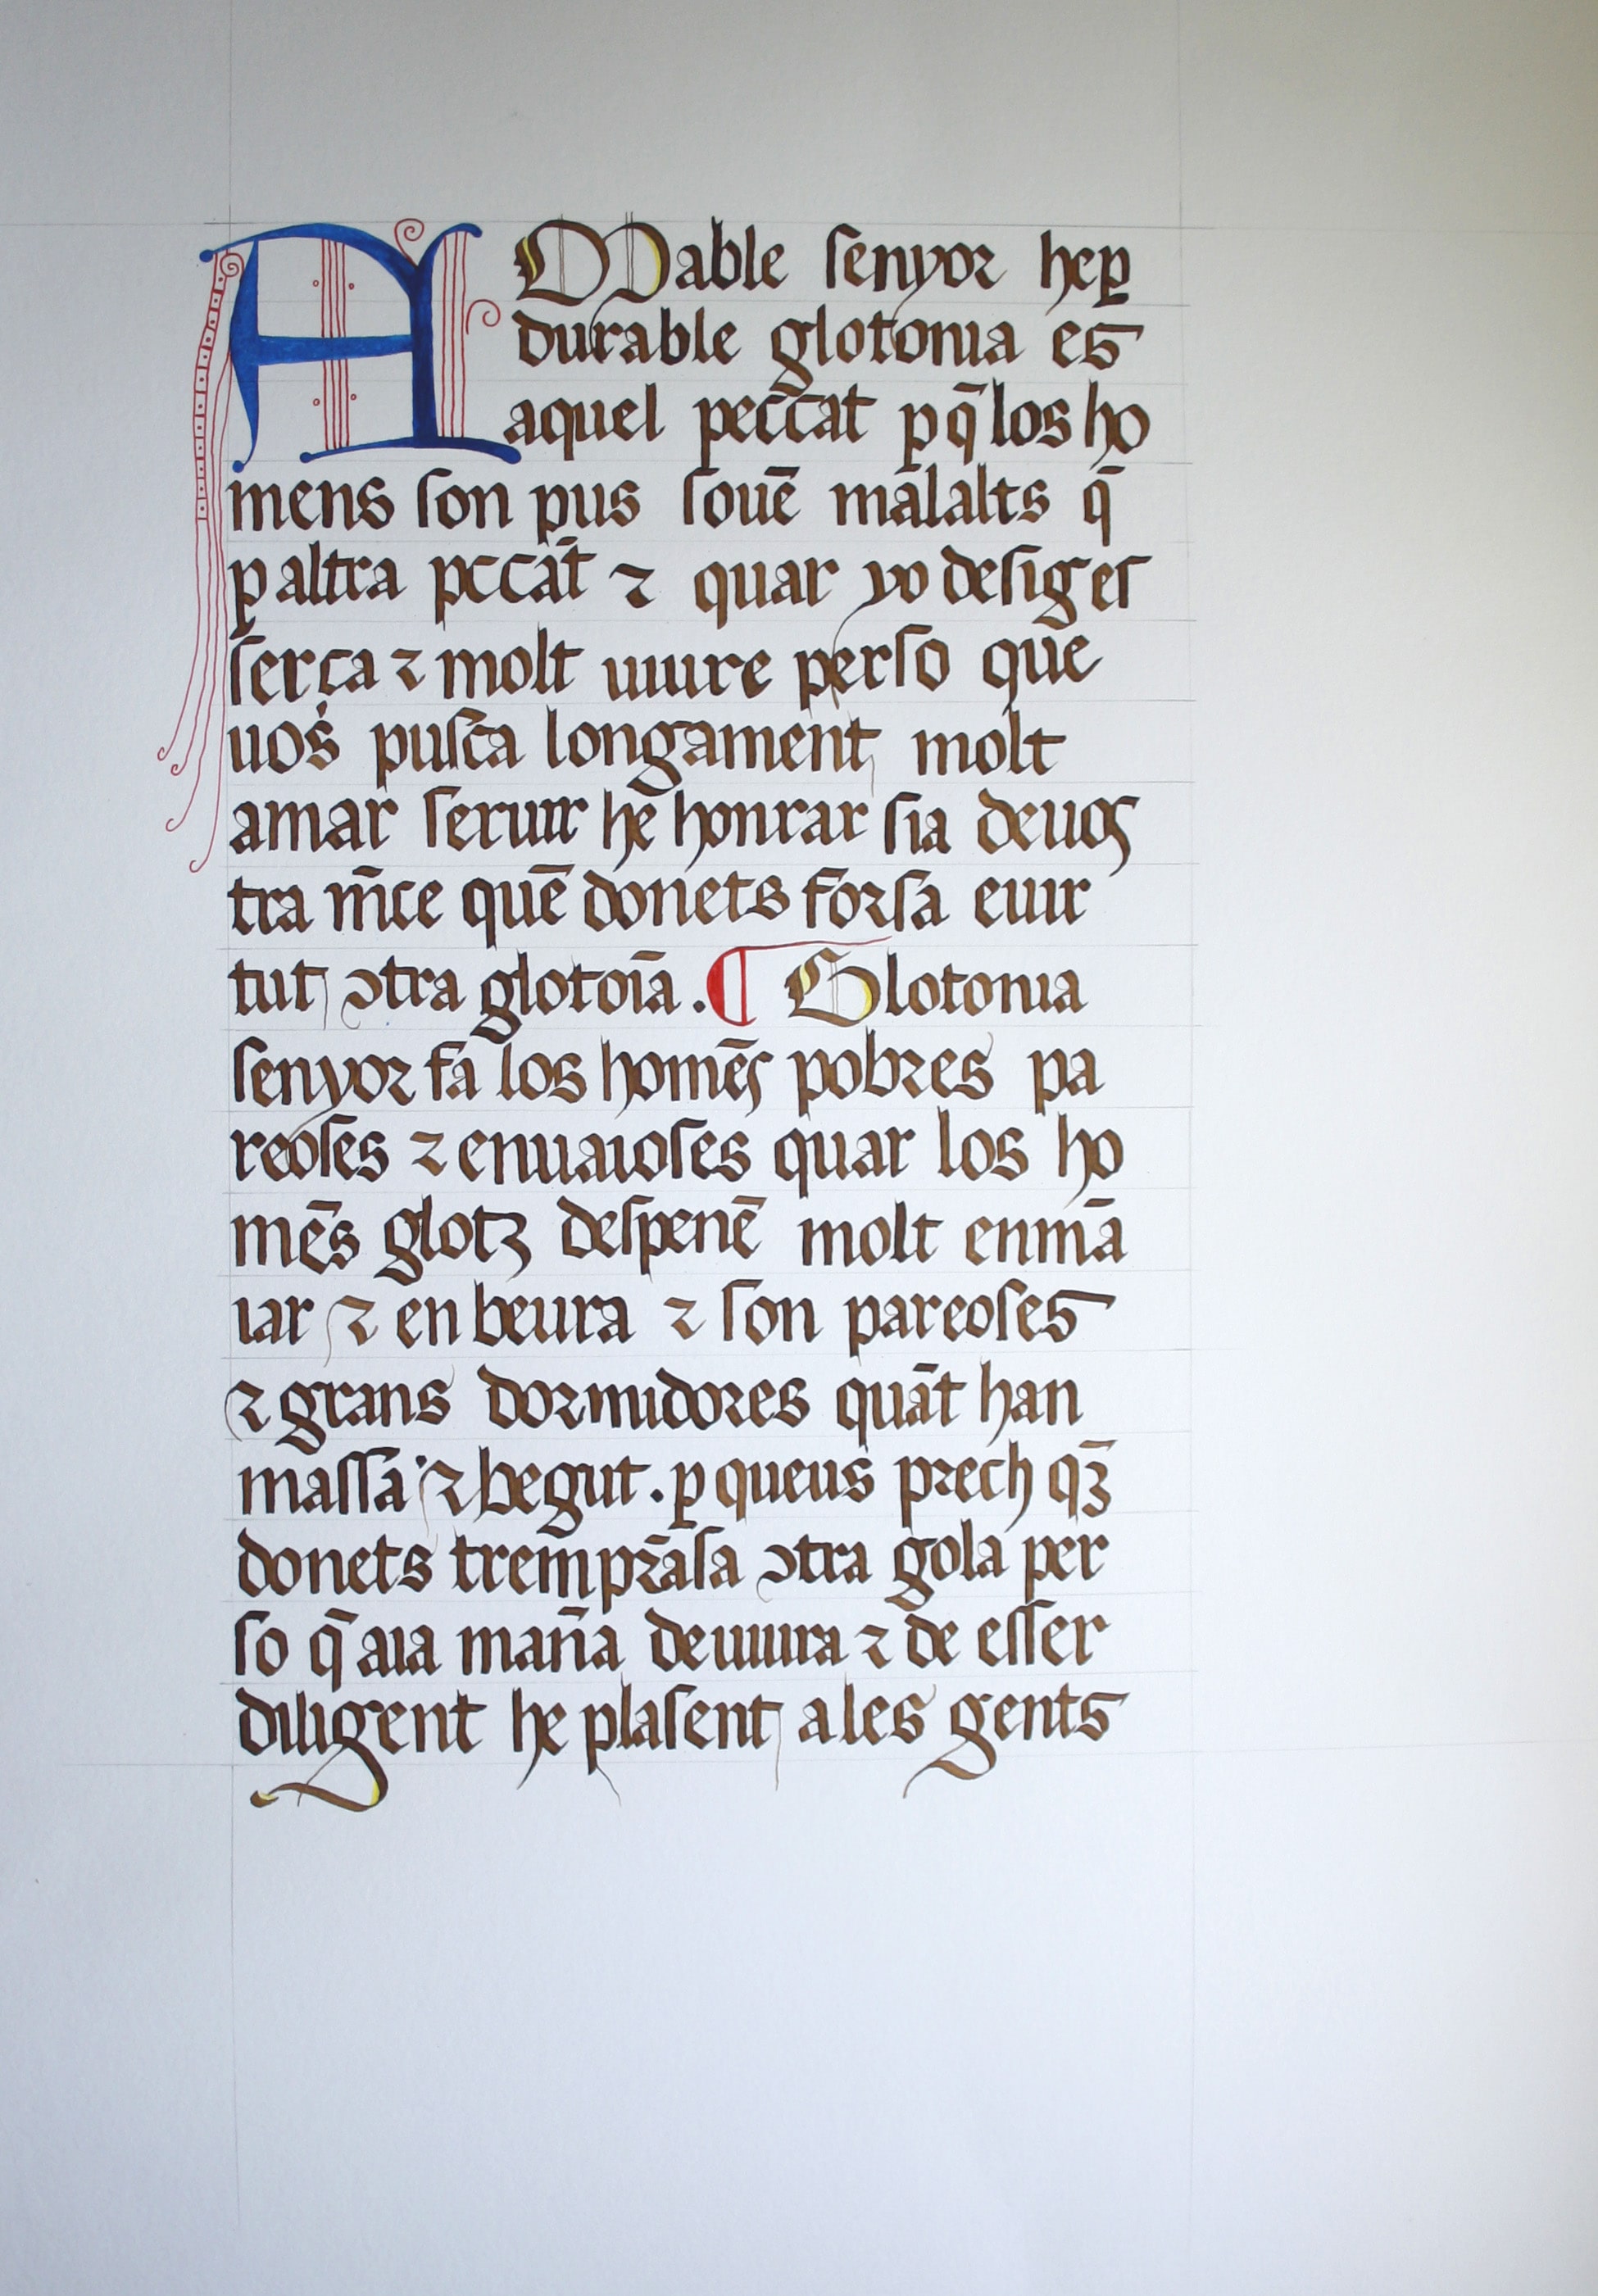 AMable senyor hep
durable glotonia es
aquel peccat p q̄ los ho
mens son pus souē malalts q̄
p altra pccāt ⁊ quar yo desig es
serça ⁊ molt uiure perso que
uos pusca longament molt
amar seruir hē honrar sia deuos
tra m̄ce quē donets forsa euir
tut ↄtra glotoīa . ¶ Glotonia
senyor fa los homēs pobres pa
reoses ⁊ enuaioses quar los ho
mēs glotz despenē molt enmā
iar ⁊ en beura ⁊ son pareoses
⁊ grans dormidores quāt han
massa ⁊ begut . p queus prech qꝫ̄
donets trem̄prāsa ↄtra gola per
so q̄ aia man̄a deuiura ⁊ de esser
diligent he plasent a les gents